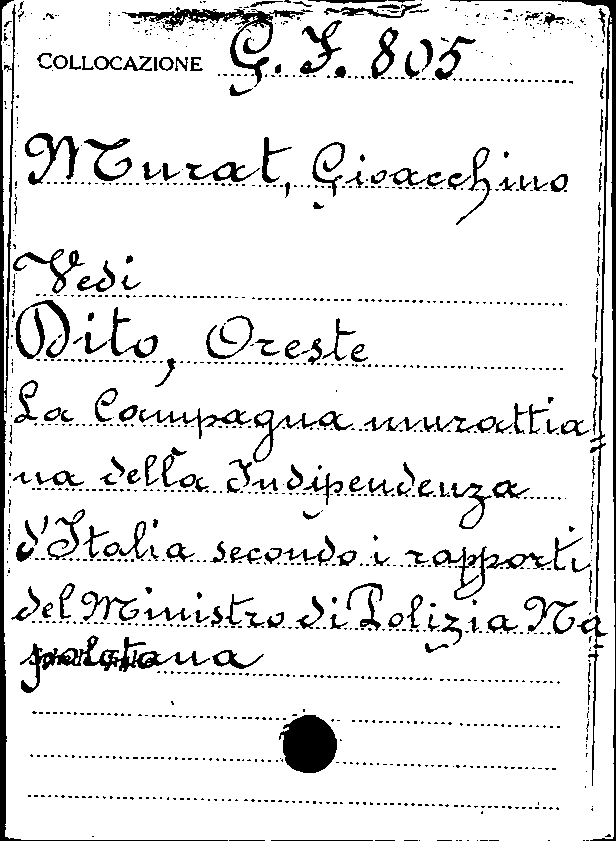 COLLOCAZIONE G. F. 805
Murat, Gioacchino
Vedi
Dito, Oreste
La Campagna murattia=
na della Indipendenza
d'Italia secondo i rapporti
del Ministro di Polizia Na=
poletana